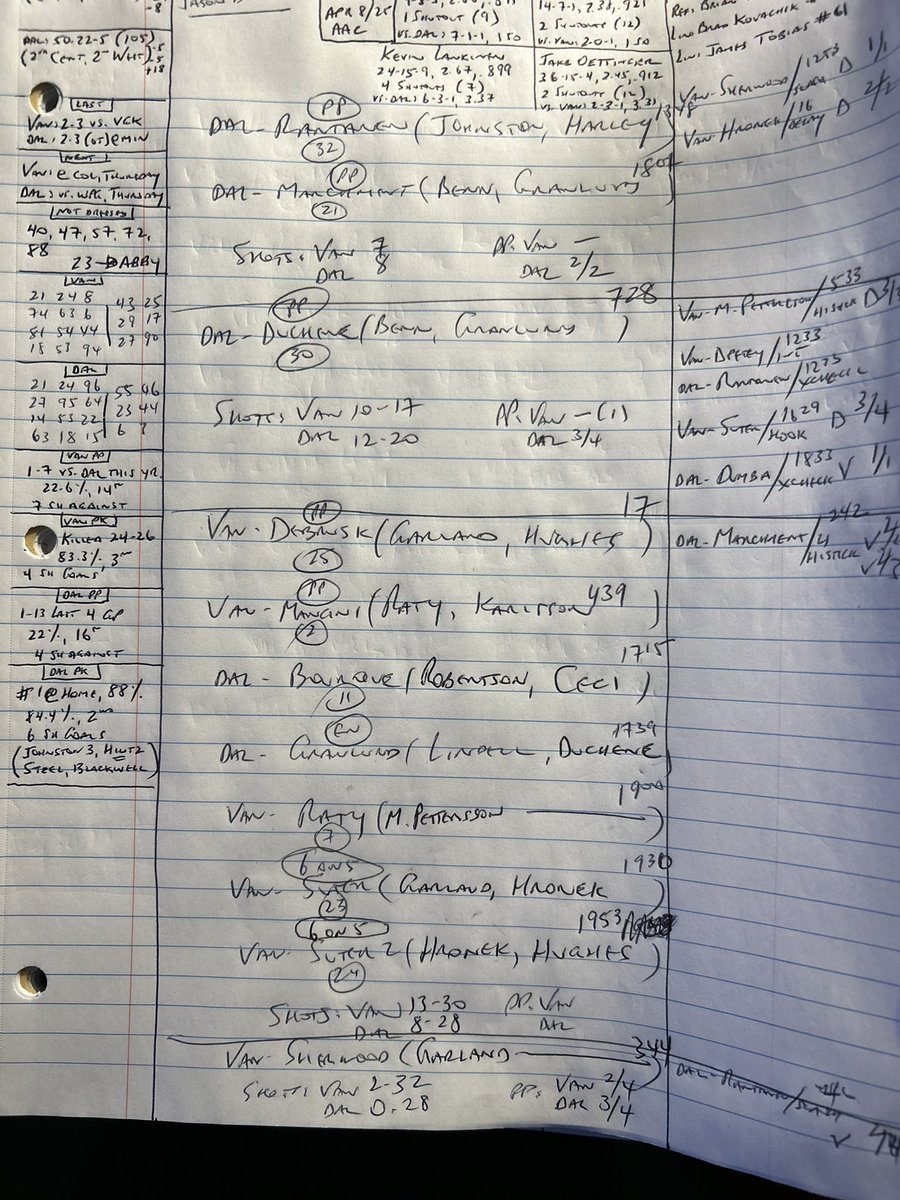 -8
APR 8/25
AAC
1 SHUTOUT (9)
VS. DAL: 7-1-1, 1.50
14-7-1, 2.33, .921
2 SHUTOUTS (12)
VS. VAN: 2-0-1, 1.50
REF: BRIAN
LIN: BRAD KOVACHIK
LIN: JAMES TOBIAS #61
DAL: 50-22-5 (105)
(2ND CENT, 2ND WEST)
+18
KEVIN LANKINEN
24-15-9, 2.67, .899
4 SHUTOUTS (7)
VS. DAL: 6-3-1, 3.37
JAKE OETTINGER
36-15-4, 2.45, .912
2 SHUTOUTS (12)
VS. VAN: 2-3-1, 3.31
LAST
VAN: 2-3 VS. VGK
DAL: 2-3 (OT) @ MIN
NEXT
VAN: @ COL, THURSDAY
DAL: VS. WPG, THURSDAY
NOT DRESSED
40, 47, 57, 72,
88
23-DABBY
VAN
21 24 8
74 63 6
81 54 44
18 53 94
43 25
29 17
27 90
DAL
21 24 96
27 95 64
14 53 22
63 18 15
55 46
23 44
6
VAN PP
1-7 VS. DAL THIS YR.
22.6%, 14TH
7 SH AGAINST
VAN PK
KILLED 24-26
83.3%, 3RD
4 SH GOALS
DAL PP
1-13 LAST 4 GP
22%, 16TH
4 SH AGAINST
DAL PK
#1 @ HOME, 88%
84.4%, 2ND
6 SH GOALS
(JOHNSTON 3, HINTZ
STEEL, BLACKWELL)
PP
DAL- RANTANEN (JOHNSTON, HARLEY)
32
PP 1807
DAL- MARCHMENT (BENN, GRANLUND)
21
SHOTS: VAN 7 PP: VAN —
DAL 8 DAL 2/2
PP 728
DAL- DUCHENE (BENN, GRANLUND)
30
SHOTS: VAN 10-17 PP: VAN — (1)
DAL 12-20 DAL 3/4
PP 17
VAN- DEBRUSK (GARLAND, HUGHES)
25
PP 439
VAN- MANCINI (RATY, KARLSSON)
2
1715
DAL- BOURQUE (ROBERTSON, CECI)
11
EN 1739
DAL- GRANLUND (LINDELL, DUCHENE)
1900
VAN- RATY (M. PETTERSSON)
7
6 ON 5 1930
VAN- SUTER (GARLAND, HRONEK)
23
6 ON 5 1953
VAN- SUTER 2 (HRONEK, HUGHES)
24
SHOTS: VAN 13-30 PP: VAN
DAL 8-28 DAL
344
VAN- SHERWOOD (GARLAND)
SHOTS: VAN 2-32 PP: VAN 2/4
DAL 0-28 DAL 3/4
VAN- SHERWOOD / 1253 SLASH D 1/1
VAN- HRONEK / 16 DELAY D 2/2
VAN- M. PETTERSSON / 533 HISTICK D
VAN- DPETEY / 1233
DAL- RANTANEN / 1233 XCHECK
VAN- SUTER / 1629 HOOK D 3/4
DAL- DUMBA / 1833 XCHECK V 1/1
DAL- MARCHMENT / 242 HISTICK
DAL- RANTANEN / SLASH